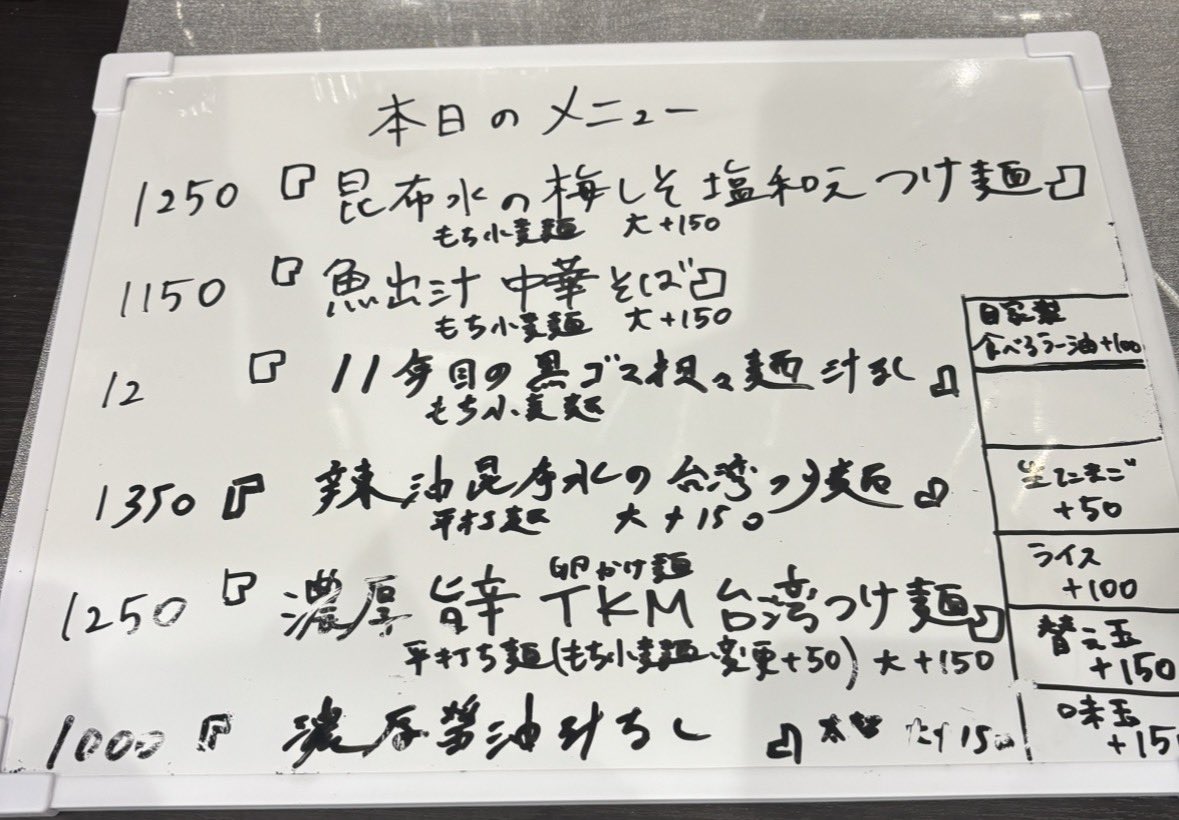 本日のメニュー
1250 『昆布水の梅しそ塩和え つけ麺』
もち小麦麺 大+150
1150 『魚出汁 中華そば』
もち小麦麺 大+150
12 『11年目の黒ゴマ担々麺 汁なし』
もち小麦麺
1350 『辣油昆布水の台湾つけ麺』
平打ち麺 大+150
卵かけ麺
1250 『濃厚 旨辛 TKM 台湾つけ麺』
平打ち麺(もち小麦麺変更+50) 大+150
1000 『濃厚醤油汁なし』
自家製
食べるラー油+100
生たまご
+50
ライス
+100
替え玉
+150
味玉
+15